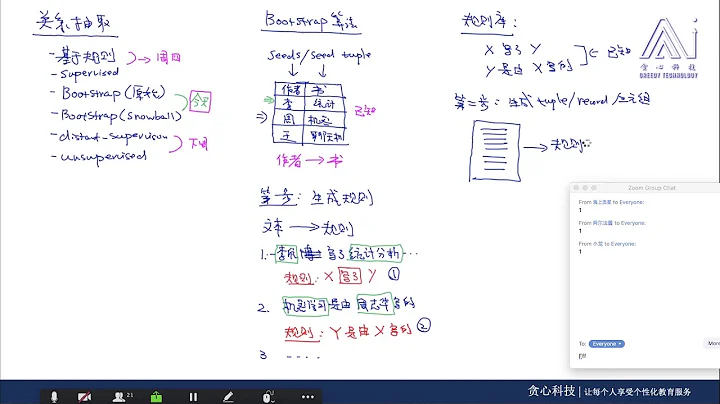 关系抽取
- 基于规则 → 周四
- Supervised
- Bootstrap (原始)
今天
- Bootstrap (snowball)
- distant-supervision
下周
- unsupervised
Bootstrap 算法
Seeds/Seed tuple
作者 书
李 统计
周 机器
王 聊天机
已知
作者 → 书
第一步: 生成规则
文本 → 规则
1. 李航 写了 统计分析 ...
规则: X 写了 Y ①
2. 机器学习 是由 周志华 写的
规则: Y 是由 X 写的 ②
3 ....
规则库:
X 写了 Y
Y 是由 X 写的
已知
第二步: 生成 tuple/record/三元组
→ 规则
贪心科技
GREEDY TECHNOLOGY
Zoom Group Chat
to Everyone:
1
to Everyone:
1
From 小龙 to Everyone:
1
To: Everyone
More
21
贪心科技 | 让每个人享受个性化教育服务